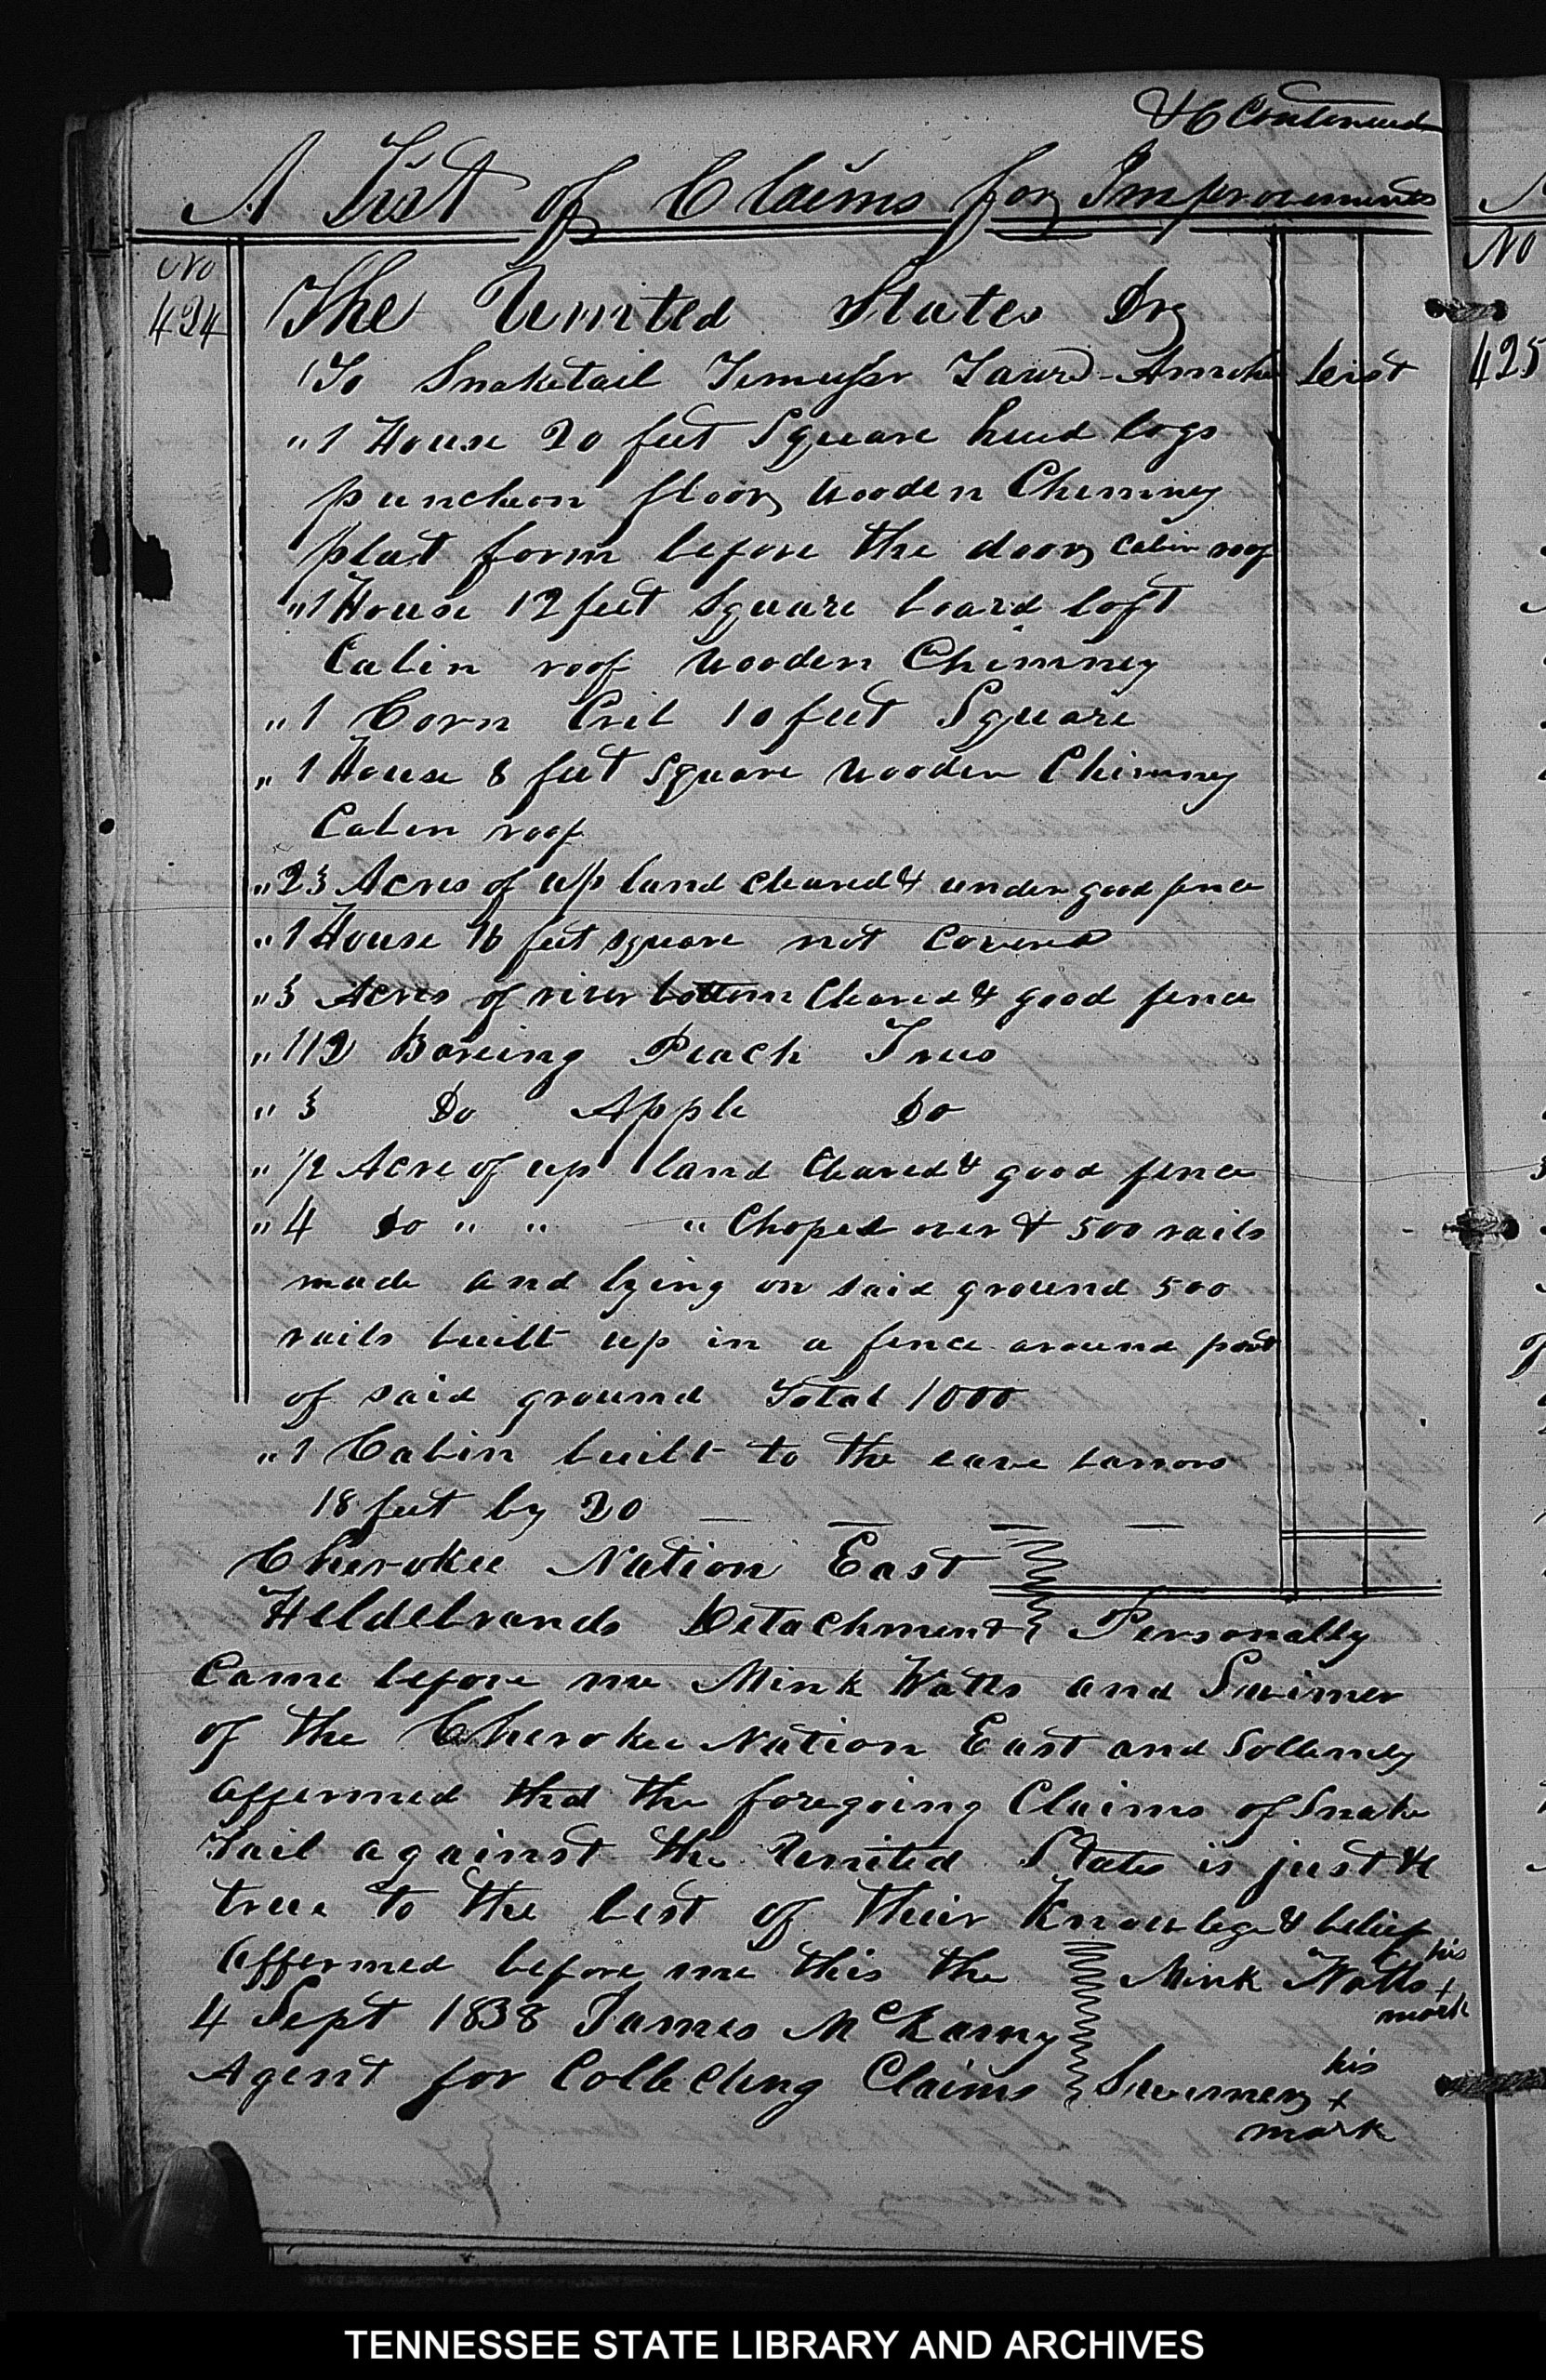 &C Continued
A List of Claims for Improvements
No
424
The United States Dr
To Snaketail Town Amohe Dist
" 1 House 20 feet Square hued logs
puncheon floor Wooden Chemney
plat form before the door Cabin roof
" 1 House 12 feet Square board loft
Cabin roof Wooden Chimney
" 1 Corn Crib 10 feet Square
" 1 House 8 feet Square Wooden Chimney
Caben roof
" 23 Acres of up land Cleared & under good fence
" 1 House 16 feet square not Covered
" 3 Acres of river bottom Cleared & good fence
" 112 Bareing Peach Trees
" 3 Do Apple Do
" 1/2 Acre of up land Cleared & good fence
" 4 Do " " " Choped over & 500 rails
made and lying on said ground 500
rails built up in a fence around part
of said ground Total 1000
" 1 Cabin built to the eave barrors
18 feet by 20
Cherokee Nation East
Heldebrands Detachment Personally
Came before me Mink Watts and Swimer
of the Cherokee Nation East and Sollemley
affermed that the foregoing Claims of Snake
Tail against the United States is just &
true to the best of their Knowlege & belief
Affermed before me this the Mink Watts his + mark
4 Sept 1838 James McKamy
Agent for Collecting Claims Swimer his + mark
No
425
TENNESSEE STATE LIBRARY AND ARCHIVES